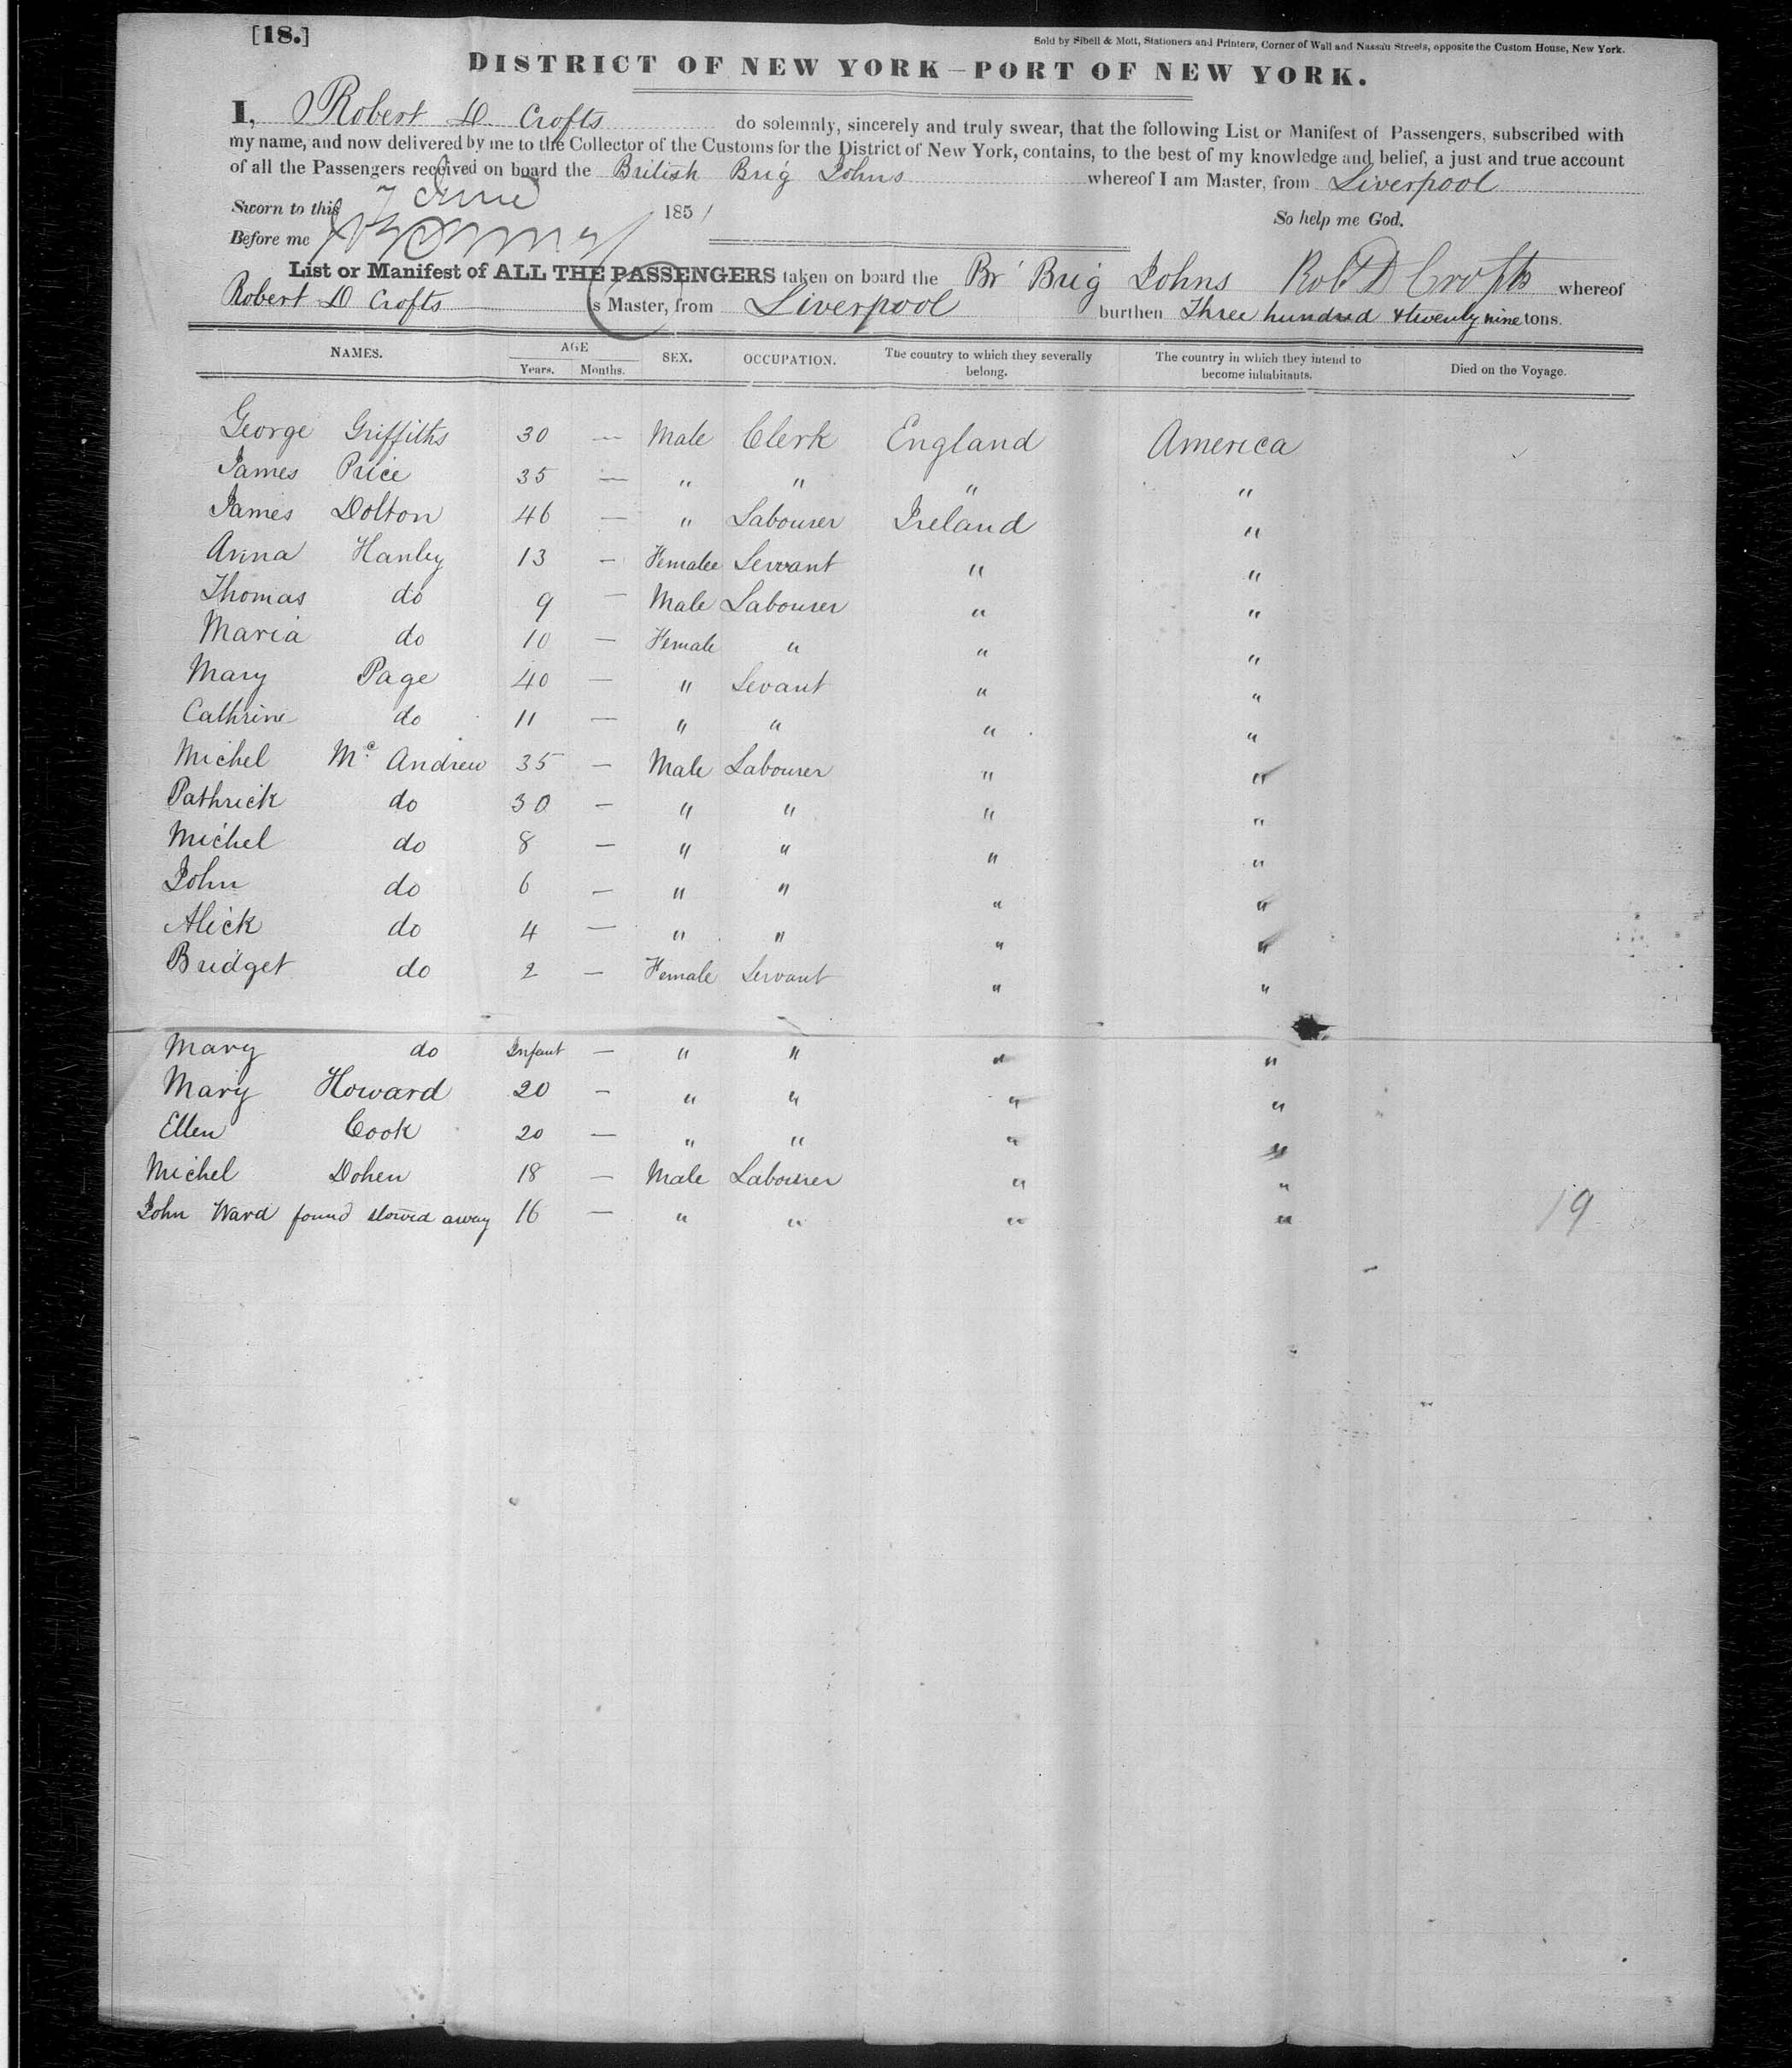 [18.]
Sold by Sibell & Mott, Stationers and Printers, Corner of Wall and Nassau Streets, opposite the Custom House, New York.
DISTRICT OF NEW YORK—PORT OF NEW YORK.
I, Robert D. Crofts do solemnly, sincerely and truly swear, that the following List or Manifest of Passengers, subscribed with
my name, and now delivered by me to the Collector of the Customs for the District of New York, contains, to the best of my knowledge and belief, a just and true account
of all the Passengers received on board the British Brig Johns whereof I am Master, from Liverpool
Sworn to this 7 June 1851 So help me God.
Before me
List or Manifest of ALL THE PASSENGERS taken on board the Br Brig Johns Robt D Crofts whereof
Robert D Crofts is Master, from Liverpool burthen Three hundred & twenty nine tons.
NAMES. AGE Years. Months. SEX. OCCUPATION. The country to which they severally belong. The country in which they intend to become inhabitants. Died on the Voyage.
George Griffiths 30 — Male Clerk England America
James Price 35 — " " " "
James Dolton 46 — " Labourer Ireland "
Anna Hanley 13 — Female Servant " "
Thomas do 9 — Male Labourer " "
Maria do 10 — Female " " "
Mary Page 40 — " Sevant " "
Cathrine do 11 — " " " "
Michel Mc Andrew 35 — Male Labourer " "
Pathrick do 30 — " " " "
Michel do 8 — " " " "
John do 6 — " " " "
Alick do 4 — " " " "
Bridget do 2 — Female Servant " "
Mary do Infant — " " " "
Mary Howard 20 — " " " "
Ellen Cook 20 — " " " "
Michel Dohen 18 — Male Labourer " "
John Ward found stowed away 16 — " " " " 19